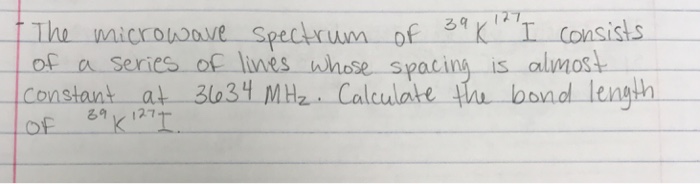 - The microwave spectrum of ³⁹K¹²⁷I consists
of a series of lines whose spacing is almost
constant at 3634 MHz. Calculate the bond length
of ³⁹K¹²⁷I.